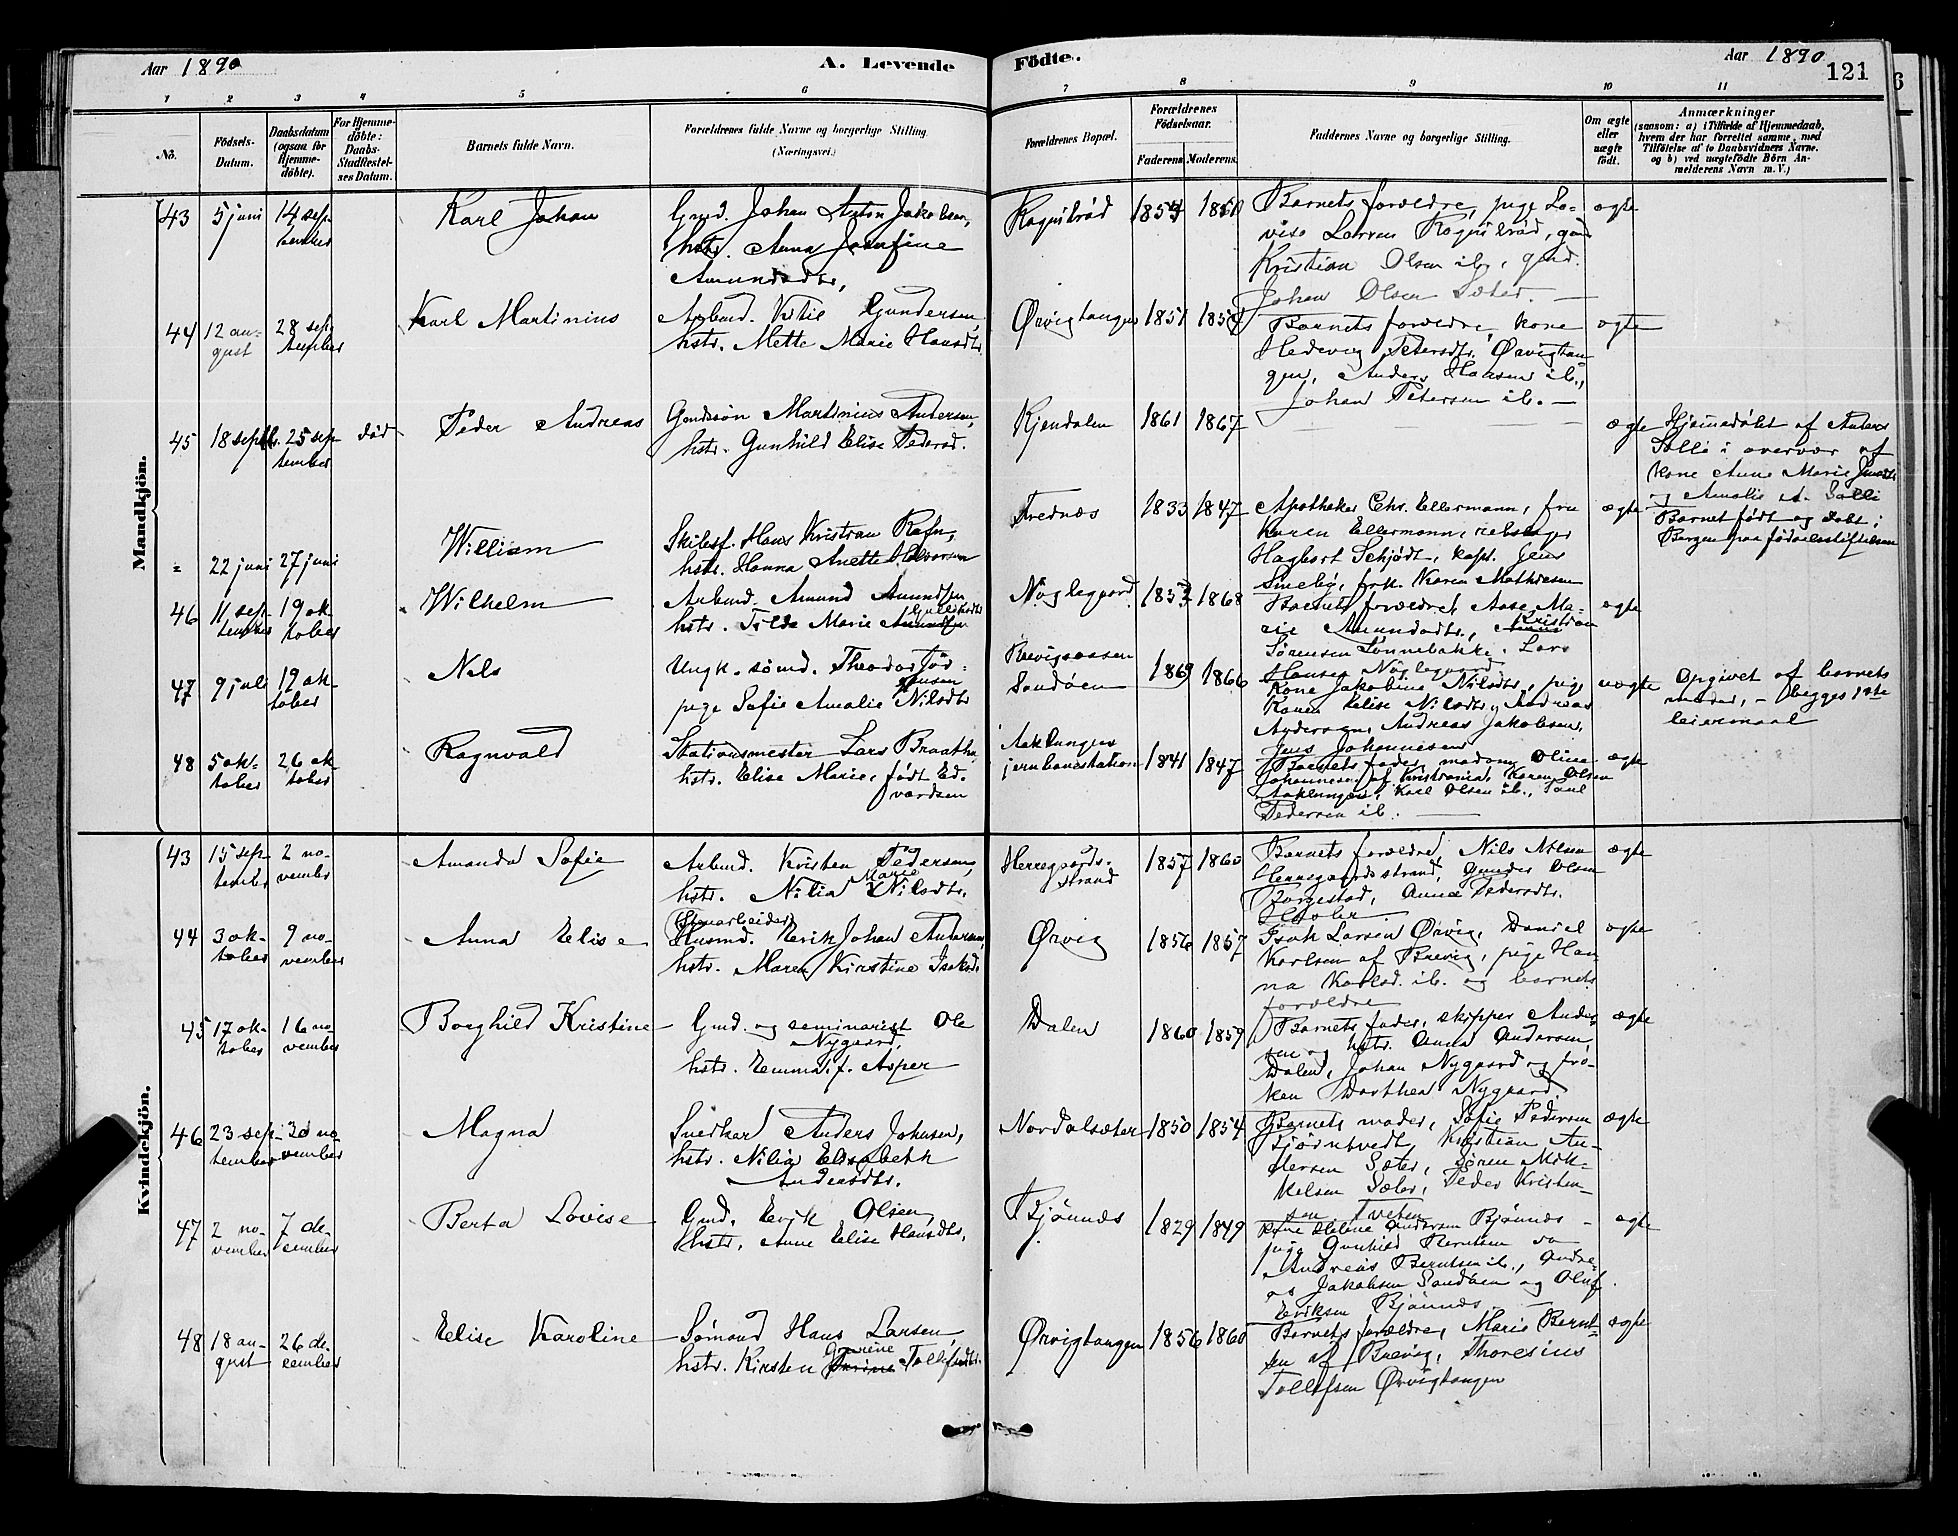 Aar 1890
A. Levende Födte.
Aar 1890
121
1 2 3 4 5 6 7 8 9 10 11
No.
Födsels-Datum.
Daabsdatum (ogsaa for Hjemme-döbte).
For Hjemme-döbte: Daabs-Stadfæstel-ses Datum.
Barnets fulde Navn.
Forældrenes fulde Navne og borgerlige Stilling.
(Næringsvei.)
Forældrenes Bopæl.
Forældrenes Födselsaar.
Faderens Moderens
Faddernes Navne og borgerlige Stilling.
Om ægte eller uægte födt.
Anmærkninger
(saasom: a) i Tilfælde af Hjemmedaab,
hvem der har forrettet samme, med
Tilföielse af to Daabsvidners Navne.
og b) ved uægtefödte Börn An-
melderens Navn m. V.)
Mandkjön.
43 5 juni 14 sep-
tember
Karl Johan
Gmd. Johan Anton Jakobsen,
hstr. Anna Josefine
Amundsdtr,
Rognsbråd 1854 1851
Barnets forældre, pige Lo-
vise Larsen Rognsbråd, gmd
Kristian Olsen ib., gmd.
Johan Olsen Sæter. —
ægte
44 12 au-
gust
28 sep-
tember
Karl Martinius
Arbmd. Kitil Gundersen,
hstr. Mette Marie Hansdtr.
Ørvigtangen 1851 1854
Barnets forældre, kone
Hedevig Petersdtr. Ørvigtan-
gen, Anders Hansen ib.,
Johan Petersen ib. —
ægte
45 18 septbr. 25 sep-
tember
död
Peder Andreas
Gmdssön Martinius Andersen,
hstr. Gunhild Elise Pedersd.
Kjendalen 1861 1867
ægte
Hjemmedöbt af Anders
Solli i overvær af
kone Anne Marie
og Amalie A. Solli
" 22 juni 27 juni
William
Skibsf. Hans Kristian Rafn,
hstr. Hanna Anette Halvorsen
Frednæs 1833 1847
Apotheker Chr. Ellermann, fru
Karen Ellermann, rebslager
Hagbart Schjödt, kapt. Jens
Smeby, frk. Karen Mathiesen
ægte
Barnet födt og döbt i
Bergen paa födselsstiftelsen
46 11 sep-
tember
19 ok-
tober
Wilhelm
Arbmd. Amund Amundsen
hstr. Tilda Marie Amundsen
Nöglegaard 1853 1868
Barnets forældre, Aase Ma-
rie Amundsdtr., Kristian
Sørensen Sønnebakke, Lars
Hansen Nöglegaard
ægte
47 9 juli 19 ok-
tober
Nils
Ungk. sömd. Theodor Jör-
gensen
pige Sofie Amalie Nilsdtr
Sandöen 1869 1866
Kone Jakobine Nilsdtr, pige
Karen Elise Nilsdtr, Andreas
Andersen, Andreas Jakobsen,
Jens Johannesen
uægte
Opgivet af barnets
moder, – begges 1ste
leiermaal
48 5 ok-
tober
26 ok-
tober
Ragnvald
Stationsmester Lars Braathu
hstr. Elise Marie, født Ed-
vardsen
Aaklungens
jernbanestation 1841 1847
Barnets fader, madam Oline
Johannesen af Kristiania, Karen Olsen
Aaklungen, Karl Olsen ib., Paul
Pedersen ib. —
ægte
Kvindekjön.
43 15 sep-
tember
2 no-
vember
Amanda Sofie
Arbmd. Kristen Pedersen,
hstr. Nilia Marie Nilsdtr.
Herregaards-
strand 1857 1860
Barnets forældre, Nils Nilsen
Herregaardsstrand, Gunder Olsen
Borgestad, Anne Pedersdtr.
ægte
44 3 ok-
tober
9 no-
vember
Anna Elise
(Stenarbeider)
Husmd. Erik Johan Andersen,
hstr. Maren Kirstine Isaksd.
Ørvig 1856 1857
Isak Larsen Ørvig, Daniel
Karlsen af Brevig, pige Han-
na Karlsd. ib. og barnets
forældre
ægte
45 17 ok-
tober
16 no-
vember
Borghild Kristine
Gmd. og seminarist Ole
Nygaard,
hstr. Emma, f. Asper
Dalen 1860 1859
Barnets fader, skipper Ander-
sen og hstr. Anna Andersen,
Dalen, Johan Nygaard og frö-
ken Dorthea Nygaard.
ægte
46 23 sep-
tember
30 no-
vember
Magna
Snedker Anders Johnsen,
hstr. Nilia Elisabeth
Andersdtr.
Nordalsæter 1850 1854
Barnets moder, Sofie Pedersen
Bjørntvedt, Kristian An-
dersen Sæter, Sören Mik-
kelsen Sæter, Peder Kristen-
sen Tveten
ægte
47 2 no-
vember
7 de-
cember
Berta Lovise
Gmd. Erik Olsen
hstr. Anne Elise Hansdtr.
Bjönnes 1829 1849
Kone Helene Andersen Bjönnes –
pige Gunhild Berntsen og
Andreas Berntsen ib., Andre-
as Jakobsen Sandöen og Oluf
Eriksen Bjönnes
ægte
48 18 au-
gust
26 de-
cember
Elise Karoline
Sömand Hans Larsen
hstr. Kirsten Gurine Tollefsdtr.
Ørvigtangen 1856 1860
Barnets forældre, Marie Bernt-
sen af Brevig, Thoresius
Tollefsen Ørvigtangen
ægte